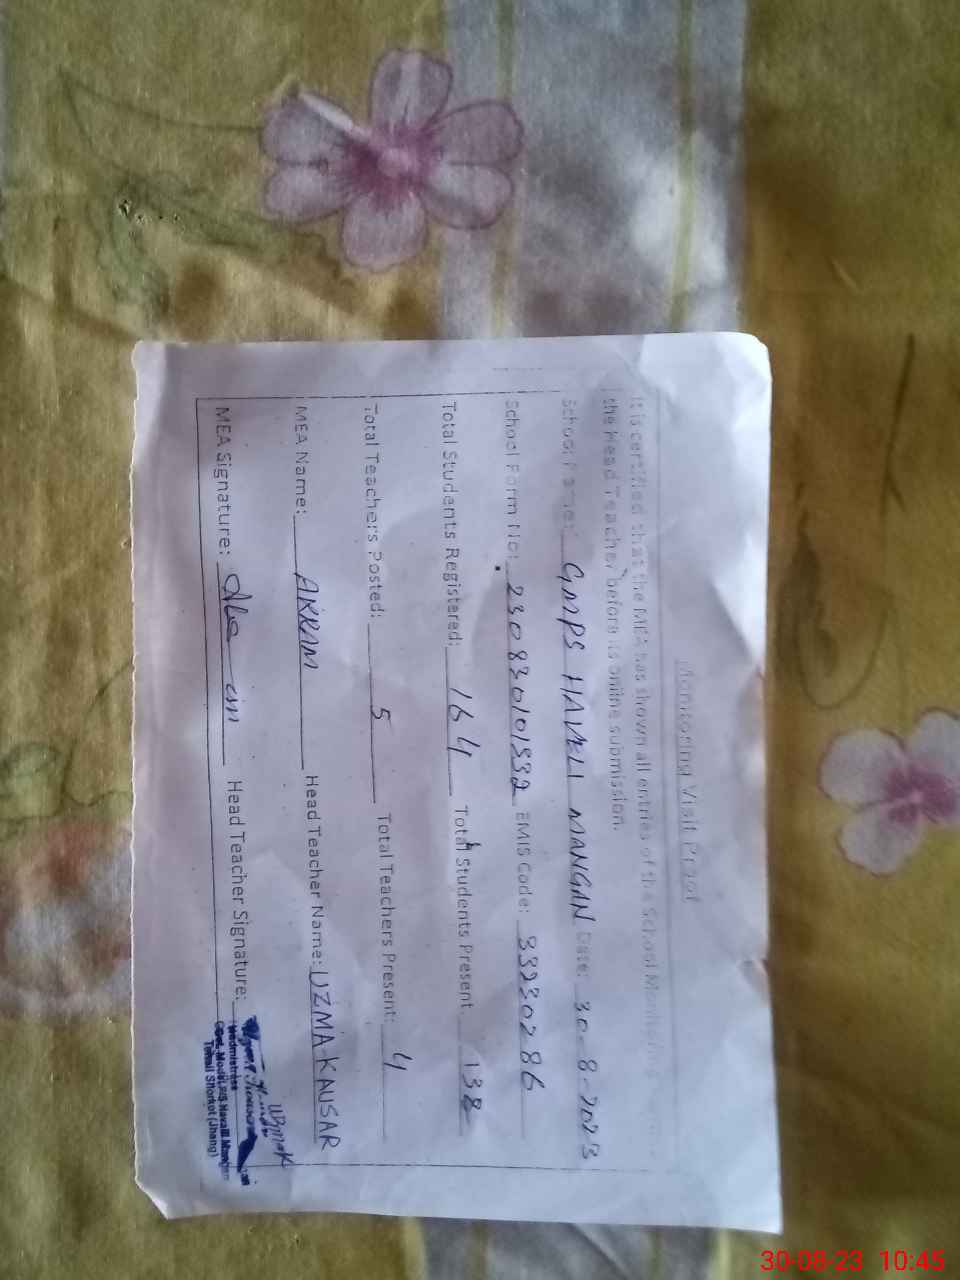 Monitoring Visit Proof
It is certified that the MEA has shown all entries of the School Monitoring
the Head Teacher before its online submission.
School Name: GMPS HAVELI MANGAN Date: 30-8-2023
School Form No: 230830101532 EMIS Code: 33230286
Total Students Registered: 164 Total Students Present 138
Total Teachers Posted: 5 Total Teachers Present: 4
MEA Name: AKRAM Head Teacher Name: UZMA KAUSAR
MEA Signature: Head Teacher Signature:
Headmistress
Govt. Model P/S Havaili Mangan
Tehsil Shorkot (Jhang)
30-08-23 10:45